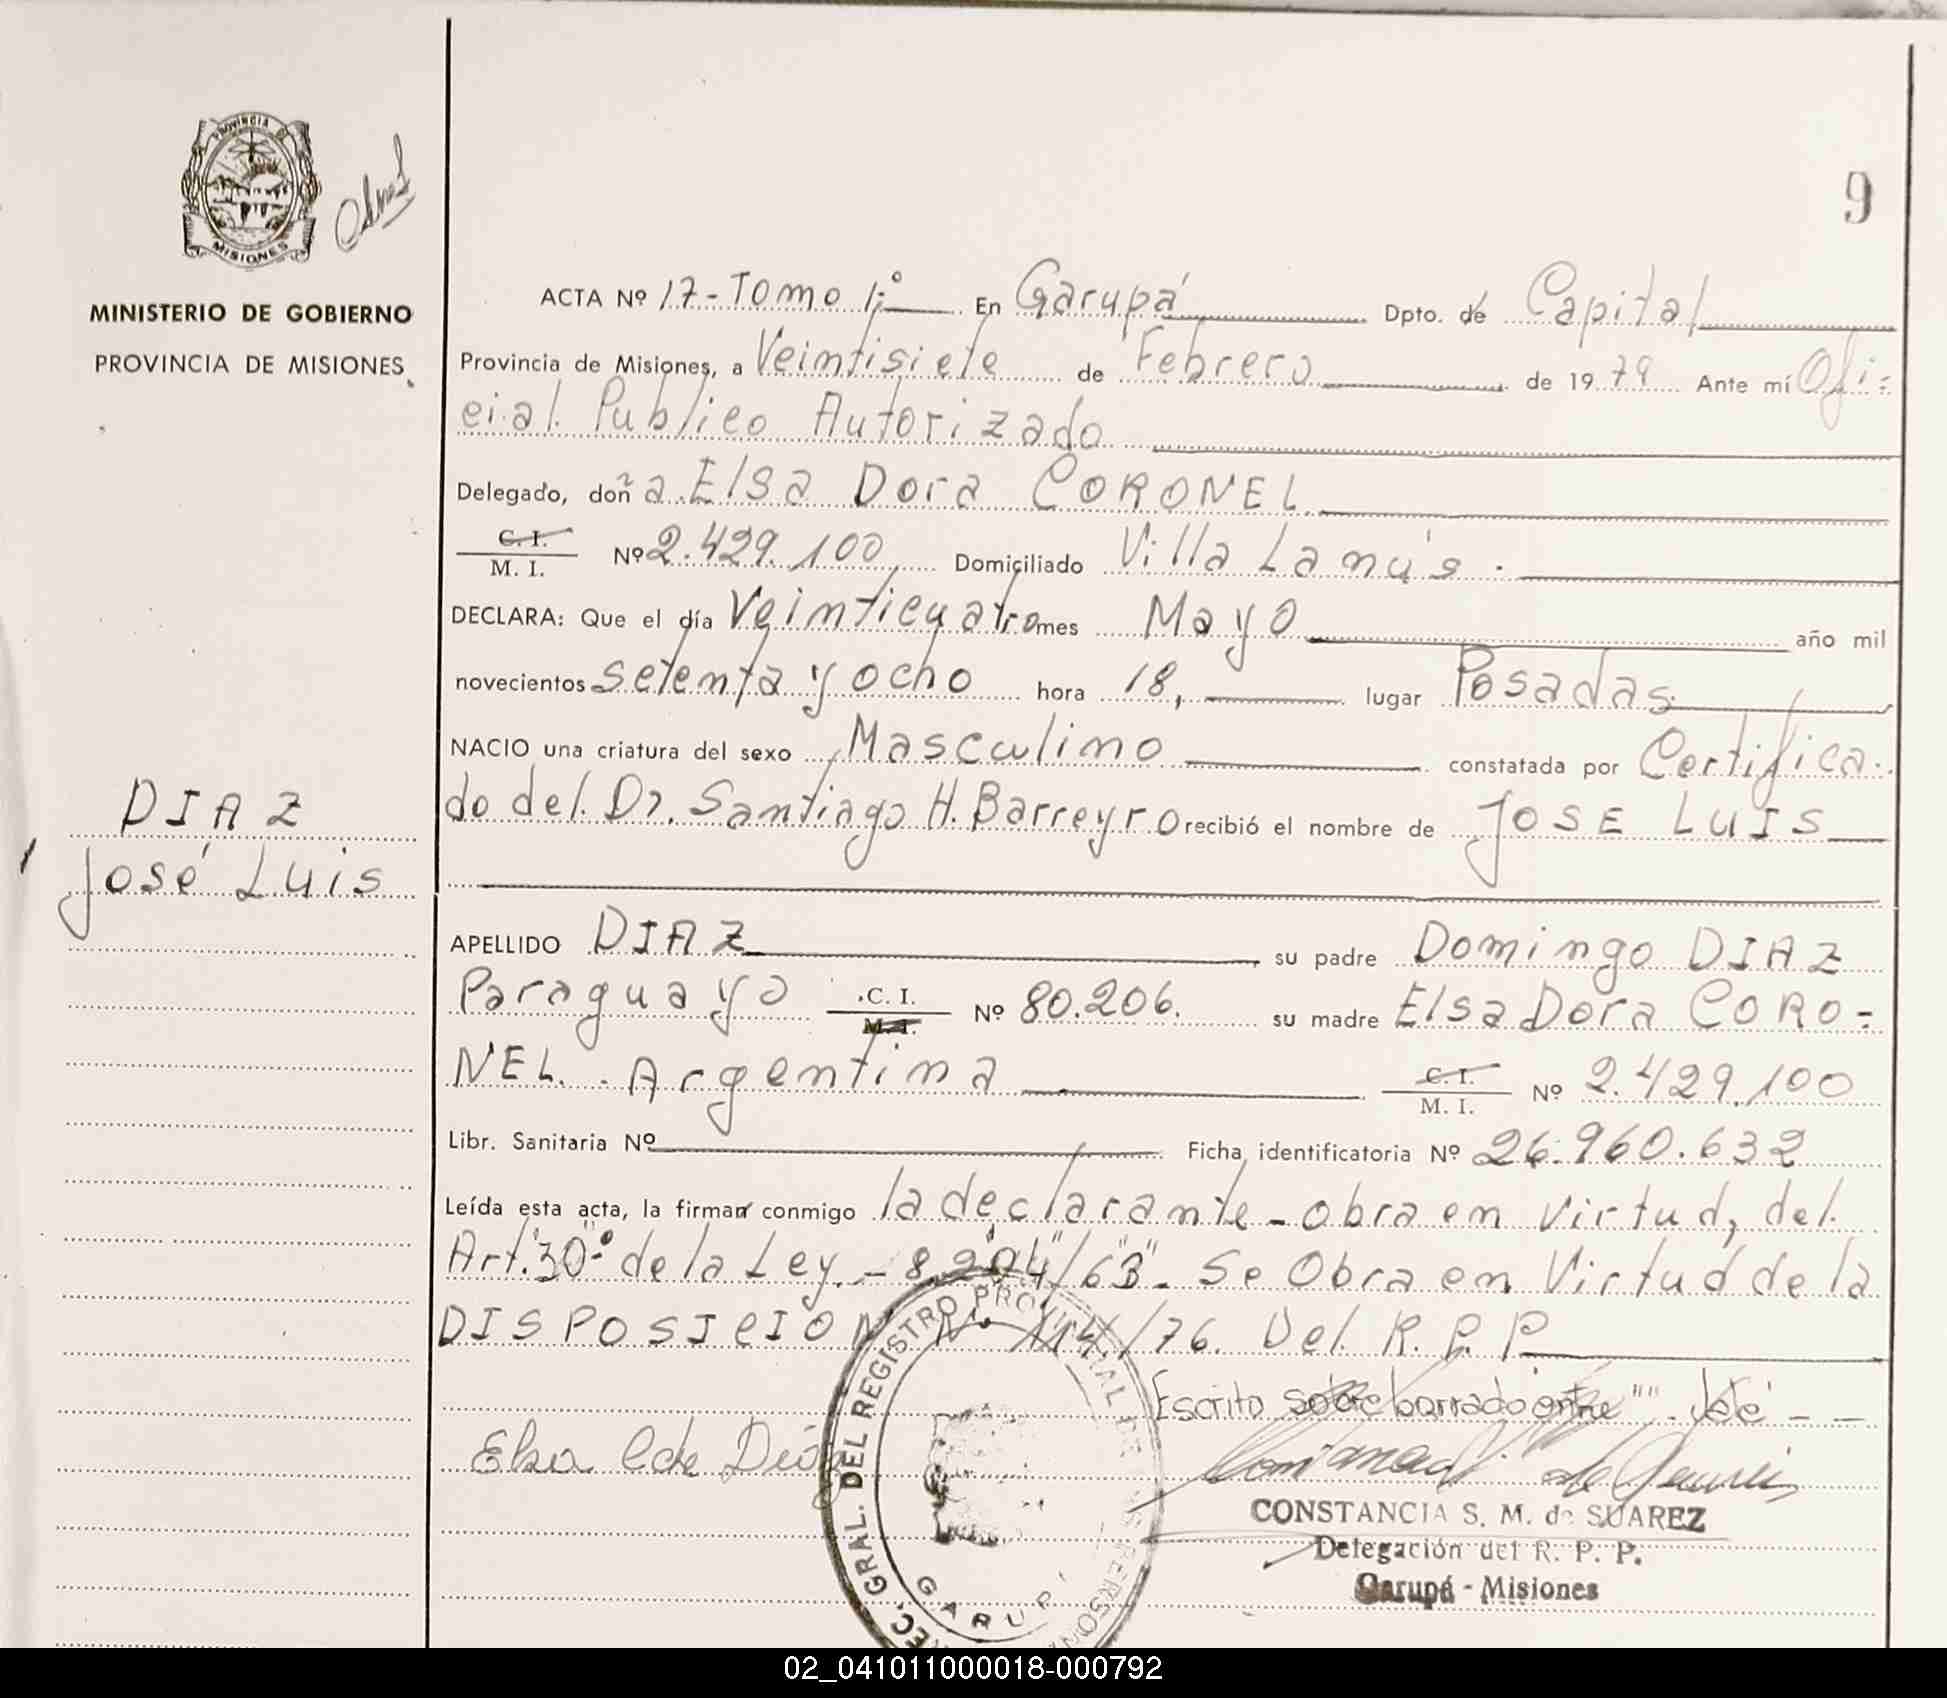 PROVINCIA DE
MISIONES
MINISTERIO DE GOBIERNO
PROVINCIA DE MISIONES
9
ACTA Nº 17-Tomo 1;º En Garupá Dpto. de Capital
Provincia de Misiones, a Veintisiete de Febrero de 1979 Ante mí Ofi=
cial Publico Autorizado
Delegado, doña Elsa Dora CORONEL
C. I.
M. I. Nº 2.429.100 Domiciliado Villa Lanús.
DECLARA: Que el día Veinticuatro mes Mayo año mil
novecientos setenta y ocho hora 18, lugar Posadas
NACIO una criatura del sexo Masculino constatada por Certifica.
do del Dr. Santiago H. Barreyro recibió el nombre de JOSE LUIS
DIAZ
José Luis
APELLIDO DIAZ su padre Domingo DIAZ
Paraguayo C. I.
M. I. Nº 80.206. su madre Elsa Dora CORO=
NEL. Argentina C. I.
M. I. Nº 2.429.100
Libr. Sanitaria Nº Ficha identificatoria Nº 26.960.632
Leída esta acta, la firman conmigo la declarante - obra en Virtud, del
Art."30"º de la Ley.- 8."204"/"63". Se Obra en Virtud de la
DISPOSICION Nº 114/76. Del R. P. P
Escrito sobre barrado entre "" José - -
Elsa C de Díaz
CONSTANCIA S. M. de SUAREZ
Delegación del R. P. P.
Garupá - Misiones
GRAL. DEL REGISTRO PROVINCIAL DE
GARUPÁ
02_041011000018-000792